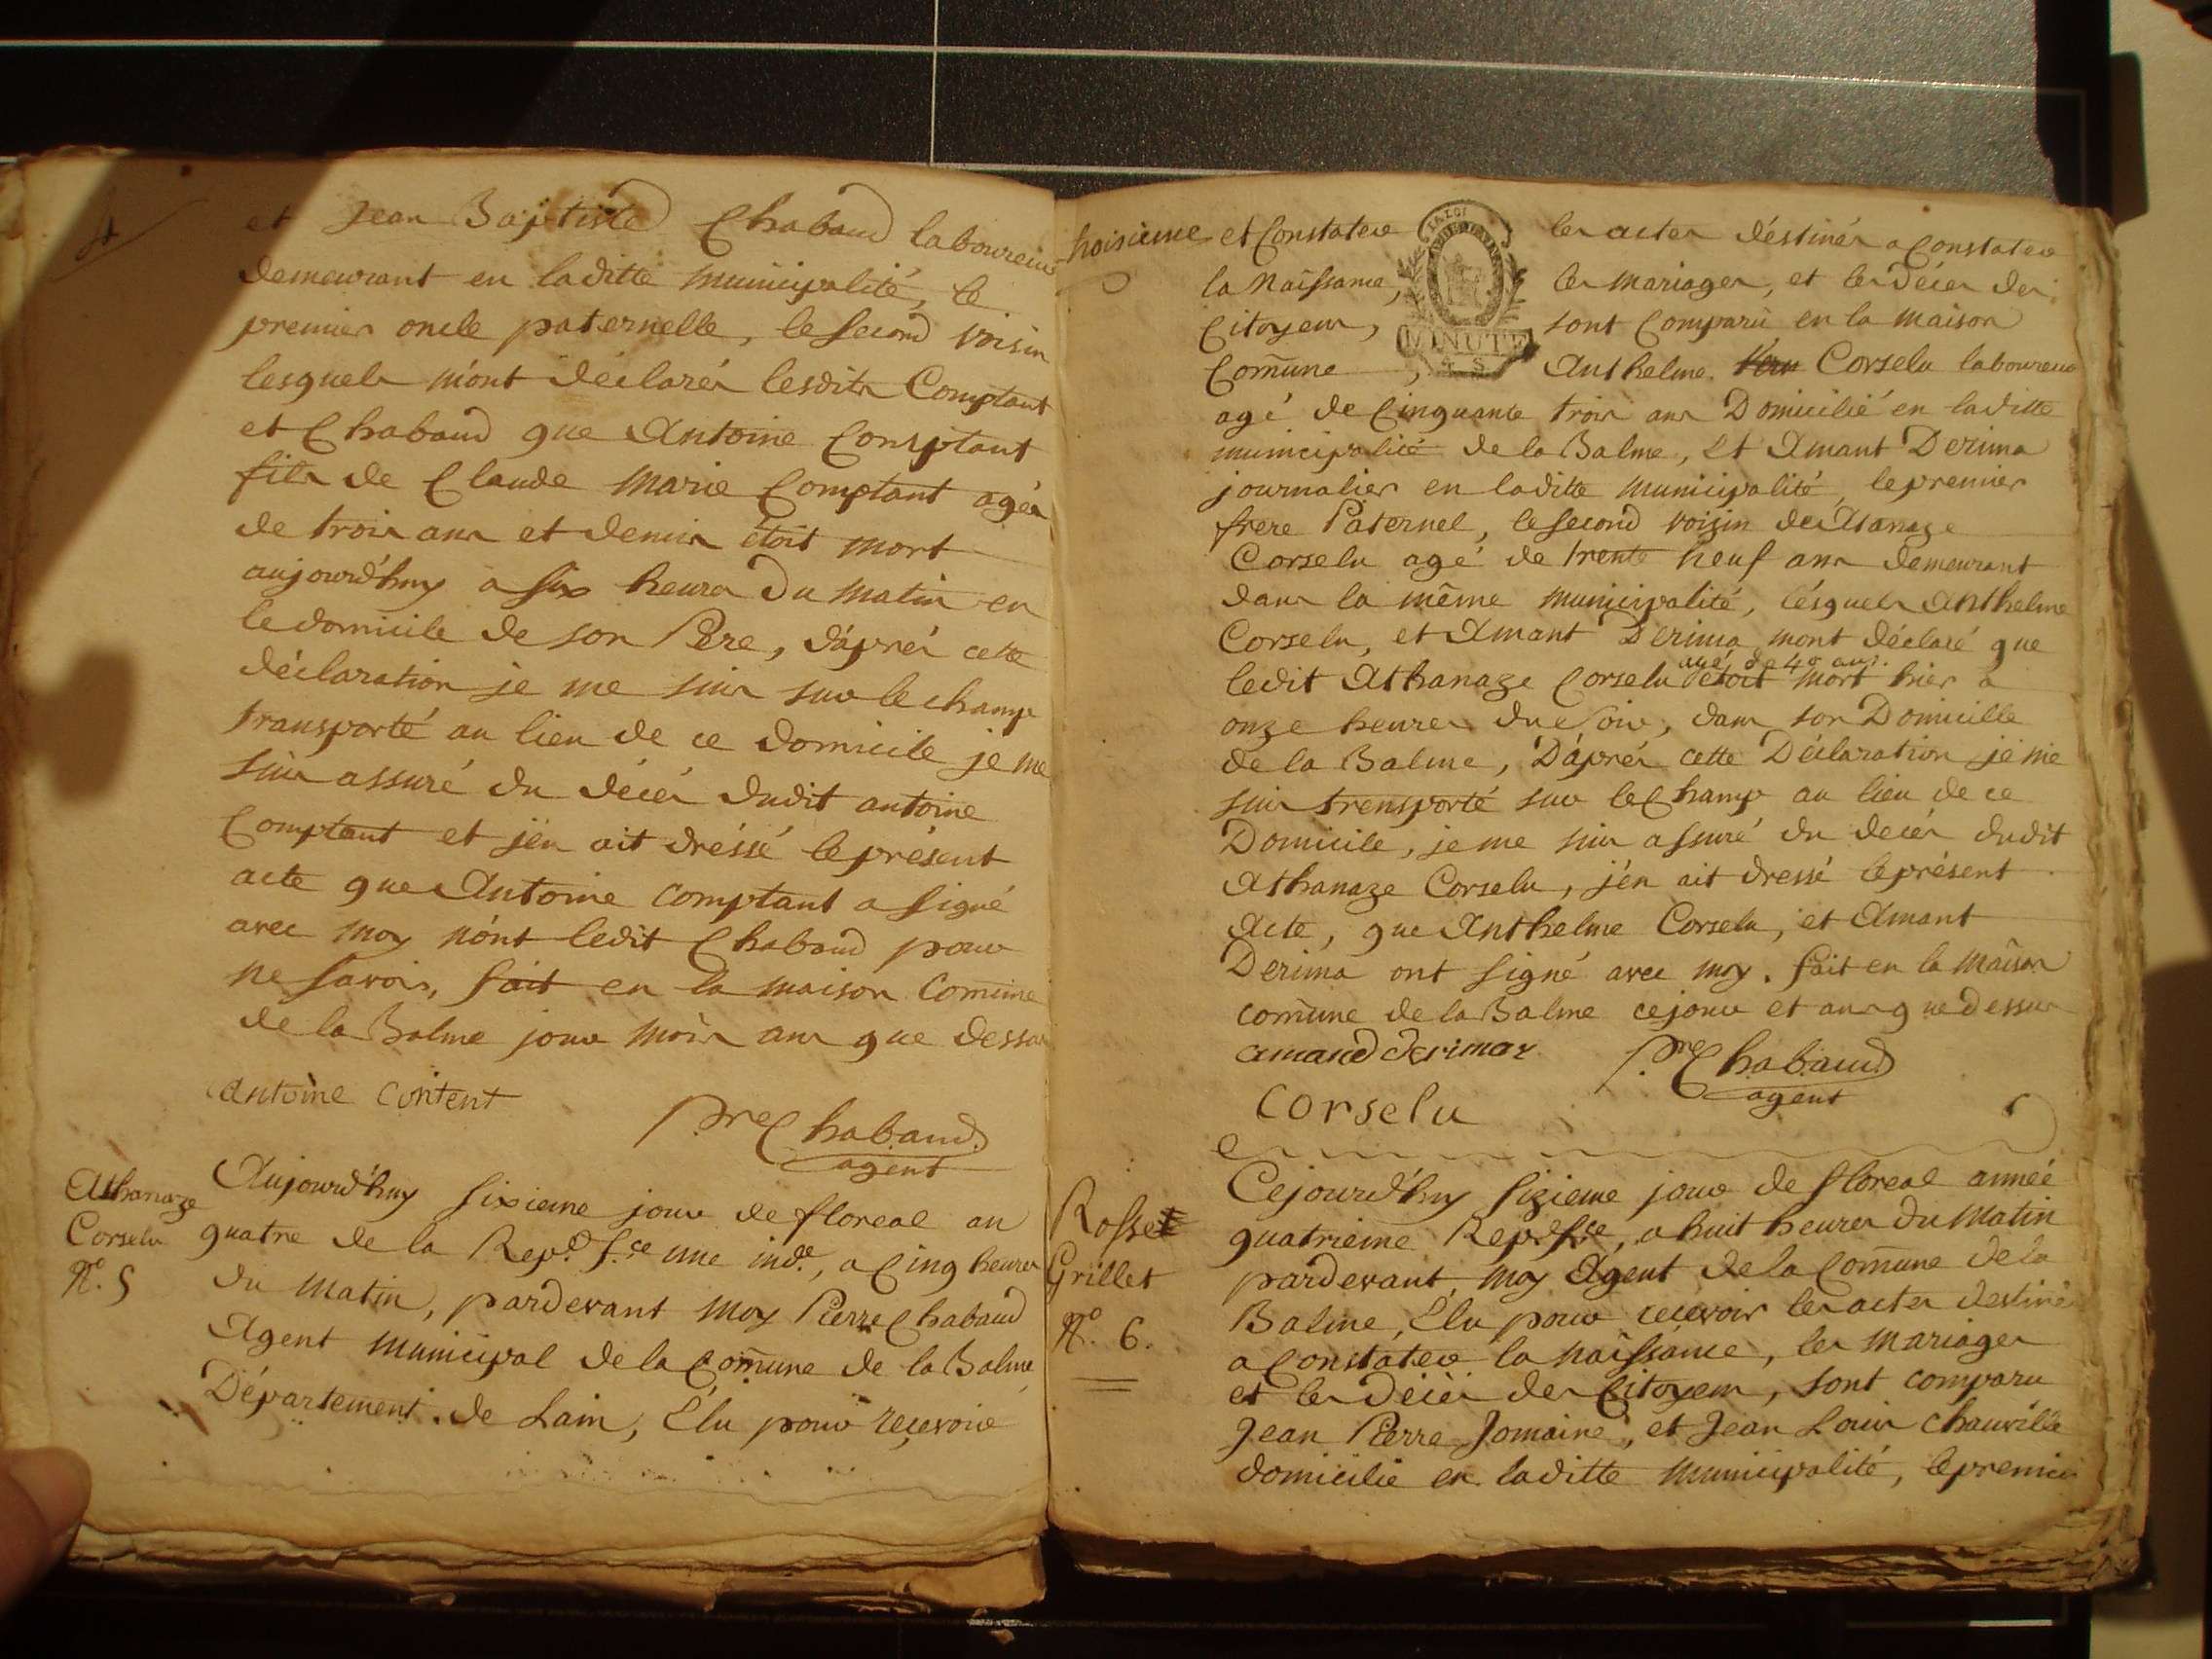 et Jean Baptiste Chabaud laboureur
demeurant en laditte municipalité, le
premier oncle paternelle, le second voisin
lesquels m'ont déclarés lesdits Comptant
et Chabaud que Antoine Comptant
fils de Claude Marie Comptant agés
de trois ans et demis étoit mort
aujourd'huy a six heures du matin en
le domicile de son Pere, d'áprés cette
déclaration je me suis sur le champ
transporté au lieu de ce domicile je me
suis assuré du décés dudit antoine
Comptant et j'én ait dréssé le présent
acte que Antoine Comptant a signé
avec moy nónt ledit Chabaud pour
ne savoir, fait en la maison Comune
de la Balme jour mois ans que dessus
antoine content
Pre Chabaud
agent
Athanaze
Corselu
No. 5
Aujourd'huy sixieme jour de floreal an
quatre de la Rep.e f.se une ind.e, a Cinq heures
du matin, pardevant moy Pierre Chabaud
Agent municipal de la Comune de la Balme
Département de Lain, Élu pour recevoir
troisieme
et Constater les actes déstinés a Constater
la Naissance, les mariages, et les décés des
Citoyens, sont Comparu en la maison
Comune, Anthelme Corselu laboureur
LA LOI
MINUTE
agé de Cinquante trois ans Domicilié en laditte
municipalité de la Balme, Et Amant Derima
journalier en laditte municipalité, le premier
frere Paternel, le second voisin de Atanaze
Corselu agé de trente neuf ans demeurant
dans la même municipalité, lésquels Anthelme
Corselu, et Amant Derima mont déclaré que
ledit Athanaze Corselu agé de 40 ans étoit mort hier a
onze heures du Soir, dans son Domicille
de la Balme, D'áprés cette Déclaration je me
suis trensporté sur le Champ au lieu de ce
Domicile, je me suis assuré du decés dudit
Athanaze Corselu, j'én ait dressé le présent
Acte, que Anthelme Corselu, et Amant
Derima ont signé avec moy. fait en la maison
comune de la Balme ce jour et ans que dessus
amand derimaz
Pre Chabaud
agent
corselu
Rosset
Grillet
No. 6.
Cejourd'huy sizieme jour de floreal année
quatrieme Rep. fse, a huit heures du matin
pardevant moy Agent de la Comune de la
Balme, Élu pour recevoir les actes destinés
a Constater la naissance, les mariages
et les décés des Citoyens, sont comparu
Jean Pierre Jomaine, et Jean Louis Chauville
domicilie en laditte municipalité, le premier